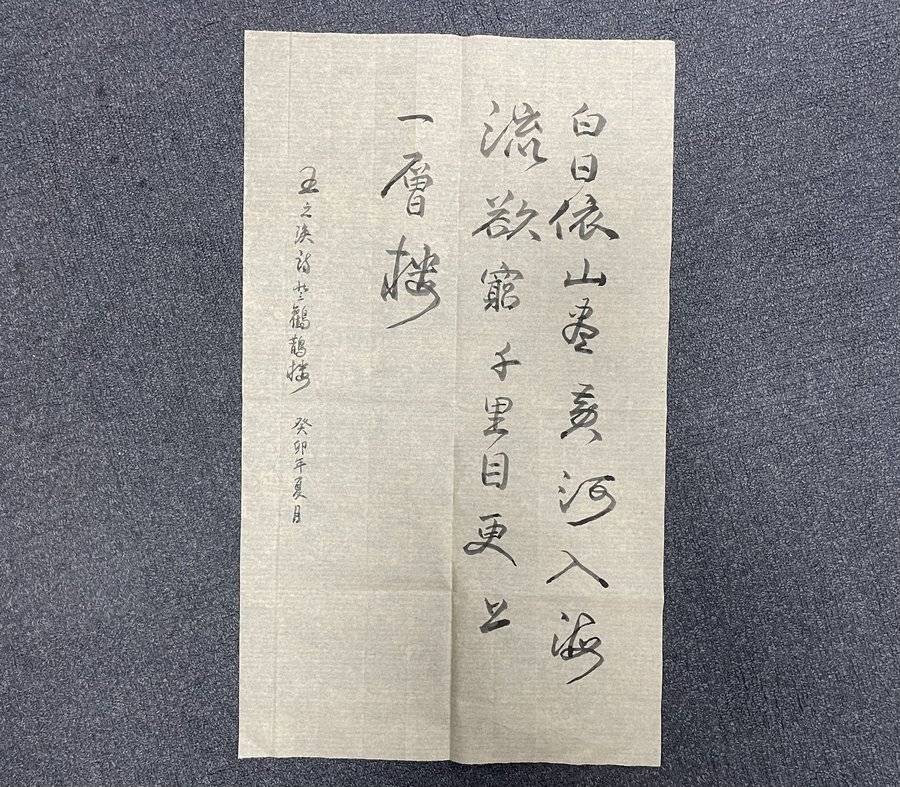 白日依山盡黄河入海
流欲窮千里目更上
一層楼
王之渙詩登鸛鵲楼 癸卯年夏月